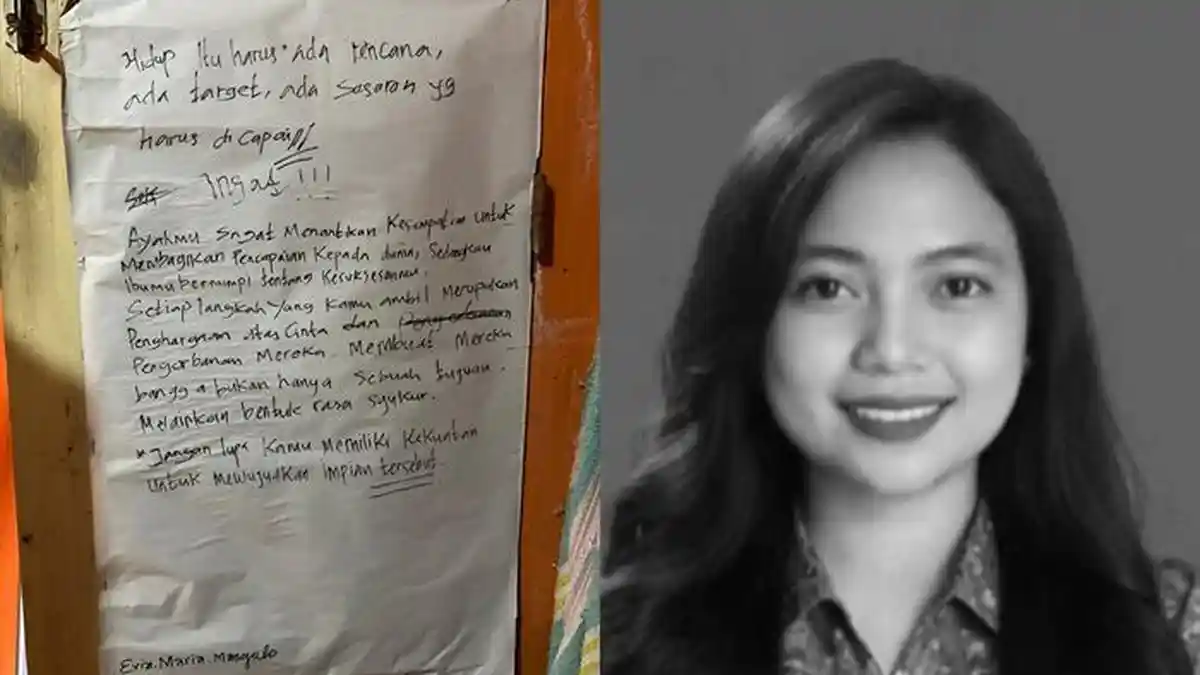 Hidup Itu harus ada rencana,
ada target, ada Sasaran yg
harus dicapai
Ingat !!!
Ayahmu Sangat Menantikan Kesempatan Untuk
Membagikan Pencapaian Kepada dunia, Sedangkan
Ibumu bermimpi tentang Kesuksesanmu.
Setiap langkah Yang Kamu ambil Merupakan
Penghargaan atas Cinta dan
Pengorbanan Mereka. Membuat Mereka
bangga bukan hanya Sebuah tujuan.
Melainkan bentuk rasa syukur.
* Jangan lupa Kamu Memiliki Kekuatan
Untuk Mewujudkan Impian tersebut
Evia. Maria. Mangolo